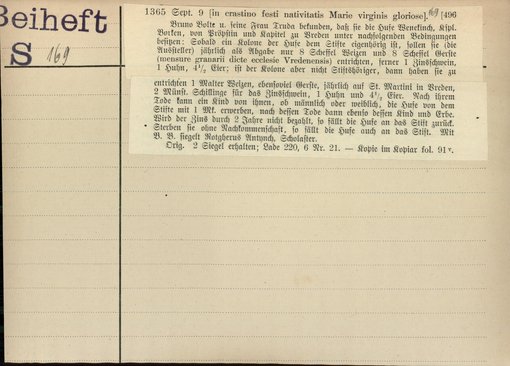 Beiheft
S 169
1365 Sept. 9 [in crastino festi nativitatis Marie virginis gloriose]. 169 [496
Bruno Bolte u. seine Frau Druda bekunden, daß sie die Hufe Wenekinck, Kspl.
Borken, von Pröpstin und Kapitel zu Vreden unter nachfolgenden Bedingungen
besitzen: Sobald ein Kolone der Hufe dem Stifte eigenhörig ist, sollen sie (die
Aussteller) jährlich als Abgabe nur 8 Scheffel Weizen und 8 Scheffel Gerste
(mensure granarii dicte ecclesie Vredenensis) entrichten, ferner 1 Zinsschwein,
1 Huhn, 4½ Eier; ist der Kolone aber nicht Stiftshöriger, dann haben sie zu
entrichten 1 Malter Weizen, ebensoviel Gerste, jährlich auf St. Martini in Vreden,
2 Münst. Schillinge für das Zinsschwein, 1 Huhn und 4½ Eier. Nach ihrem
Tode kann ein Kind von ihnen, ob männlich oder weiblich, die Hufe von dem
Stifte mit 1 Mk. erwerben, nach dessen Tode dann ebenso dessen Kind und Erbe.
Wird der Zins durch 2 Jahre nicht bezahlt, so fällt die Hufe an das Stift zurück.
Sterben sie ohne Nachkommenschaft, so fällt die Hufe auch an das Stift. Mit
B. B. siegelt Ratgherus Scholaster.
Orig. 2 Siegel erhalten; Lade 220, 6 Nr. 21. — Kopie im Kopiar fol. 91v.